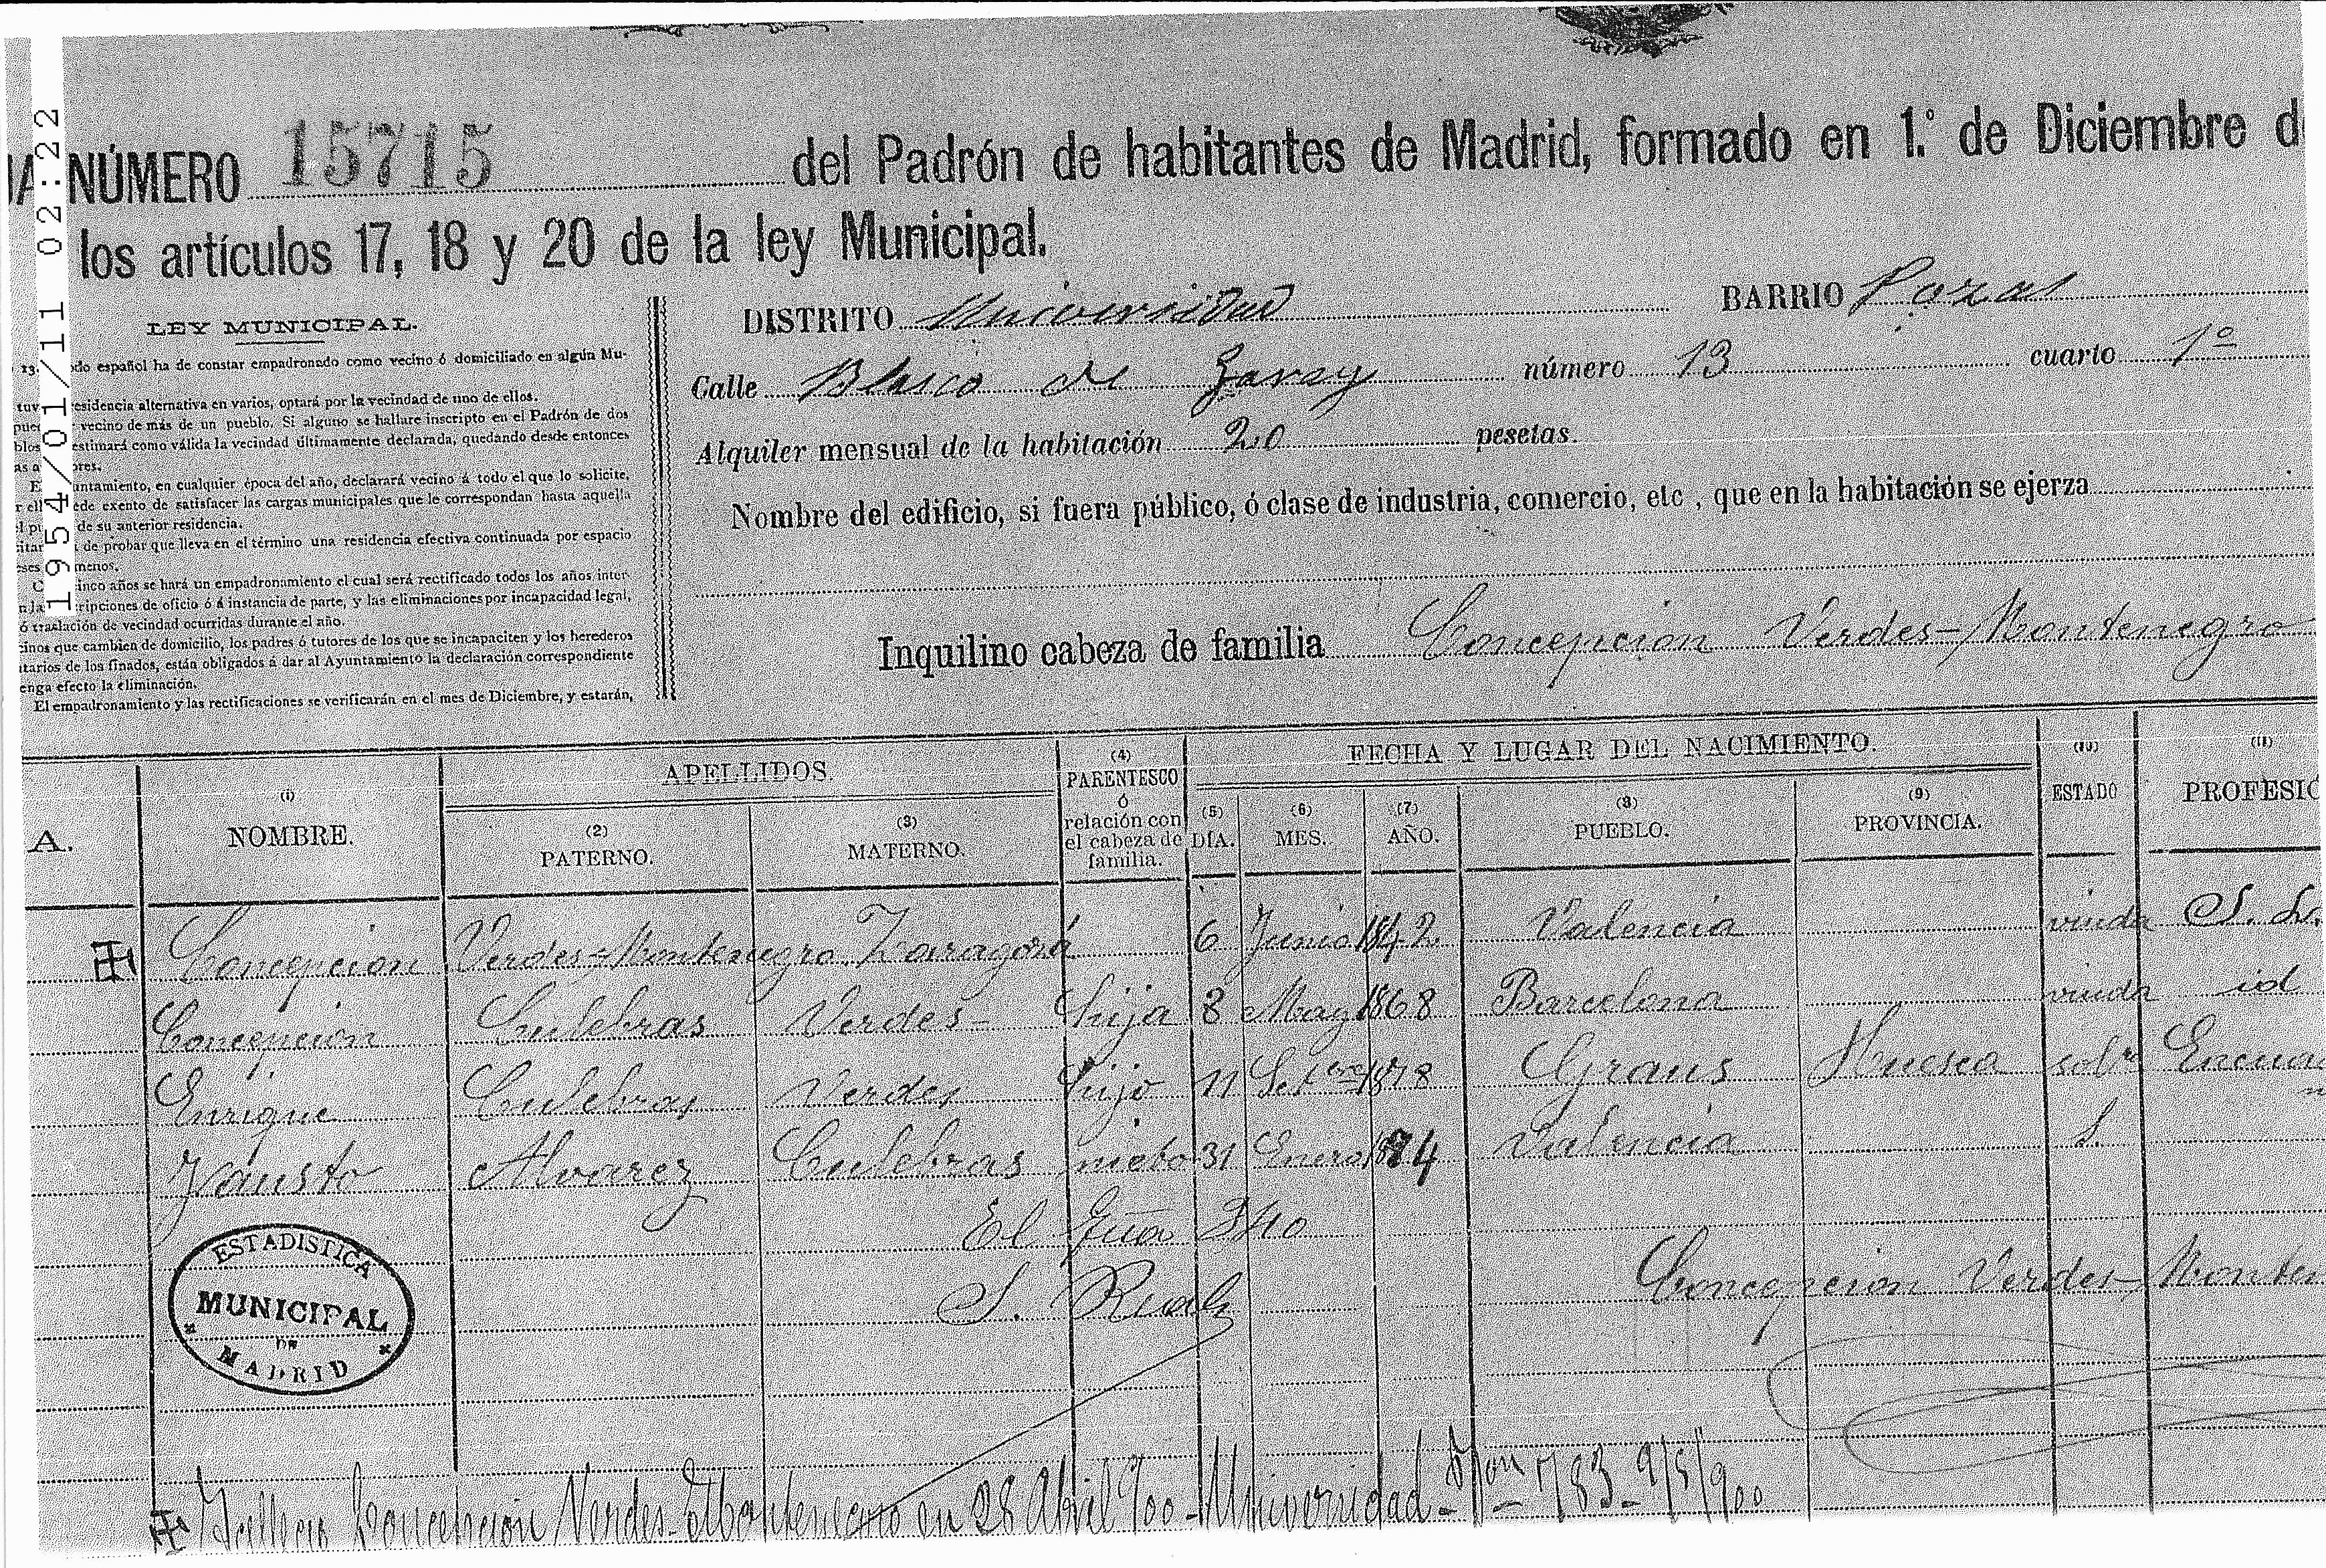 1954/01/11 02:22
A NÚMERO 15715 del Padrón de habitantes de Madrid, formado en 1.º de Diciembre d
los artículos 17, 18 y 20 de la ley Municipal.
LEY MUNICIPAL.
13. do español ha de constar empadronado como vecino ó domiciliado en algún Mu-
tuv esidencia alternativa en varios, optará por la vecindad de uno de ellos.
pue vecino de más de un pueblo. Si alguno se hallare inscripto en el Padrón de dos
blos estimará como válida la vecindad últimamente declarada, quedando desde entonces
as a ores.
E untamiento, en cualquier época del año, declarará vecino á todo el que lo solicite,
r ell ede exento de satisfacer las cargas municipales que le correspondan hasta aquella
l pu de su anterior residencia.
itar de probar que lleva en el término una residencia efectiva continuada por espacio
ses menos.
C inco años se hará un empadronamiento el cual será rectificado todos los años inter-
n la ripciones de oficio ó á instancia de parte, y las eliminaciones por incapacidad legal,
ó traslación de vecindad ocurridas durante el año.
cinos que cambien de domicilio, los padres ó tutores de los que se incapaciten y los herederos
itarios de los finados, están obligados á dar al Ayuntamiento la declaración correspondiente
enga efecto la eliminación.
El empadronamiento y las rectificaciones se verificarán en el mes de Diciembre, y estarán,
DISTRITO Universidad BARRIO Pozas
Calle Blasco de Garay número 13 cuarto 1º
Alquiler mensual de la habitación 20 pesetas.
Nombre del edificio, si fuera público, ó clase de industria, comercio, etc , que en la habitación se ejerza
Inquilino cabeza de familia Concepcion Verdes-Montenegro
A. (1) NOMBRE. APELLIDOS. (2) PATERNO. (3) MATERNO. (4) PARENTESCO ó relación con el cabeza de familia. FECHA Y LUGAR DEL NACIMIENTO. (5) DÍA. (6) MES. (7) AÑO. (8) PUEBLO. (9) PROVINCIA. (10) ESTADO (11) PROFESIÓ
Concepcion Verdes-Montenegro Zaragozá 6 Junio 1842 Valencia viuda S. L.
Concepcion Culebras Verdes- hija 8 May 1868 Barcelona viuda id
Enrique Culebras Verdes hijo 11 Setbre 1878 Graus Huesca solº Encua
Fausto Alvarez Culebras nieto 31 Enero 1884 Valencia S.
El
S.
Concepcion Verdes-Monten
ESTADISTICA
MUNICIPAL
DE
MADRID
Falleció Concepcion Verdes-Montenegro en 28 Abril 900 - Universidad - 783 - 9/5/900